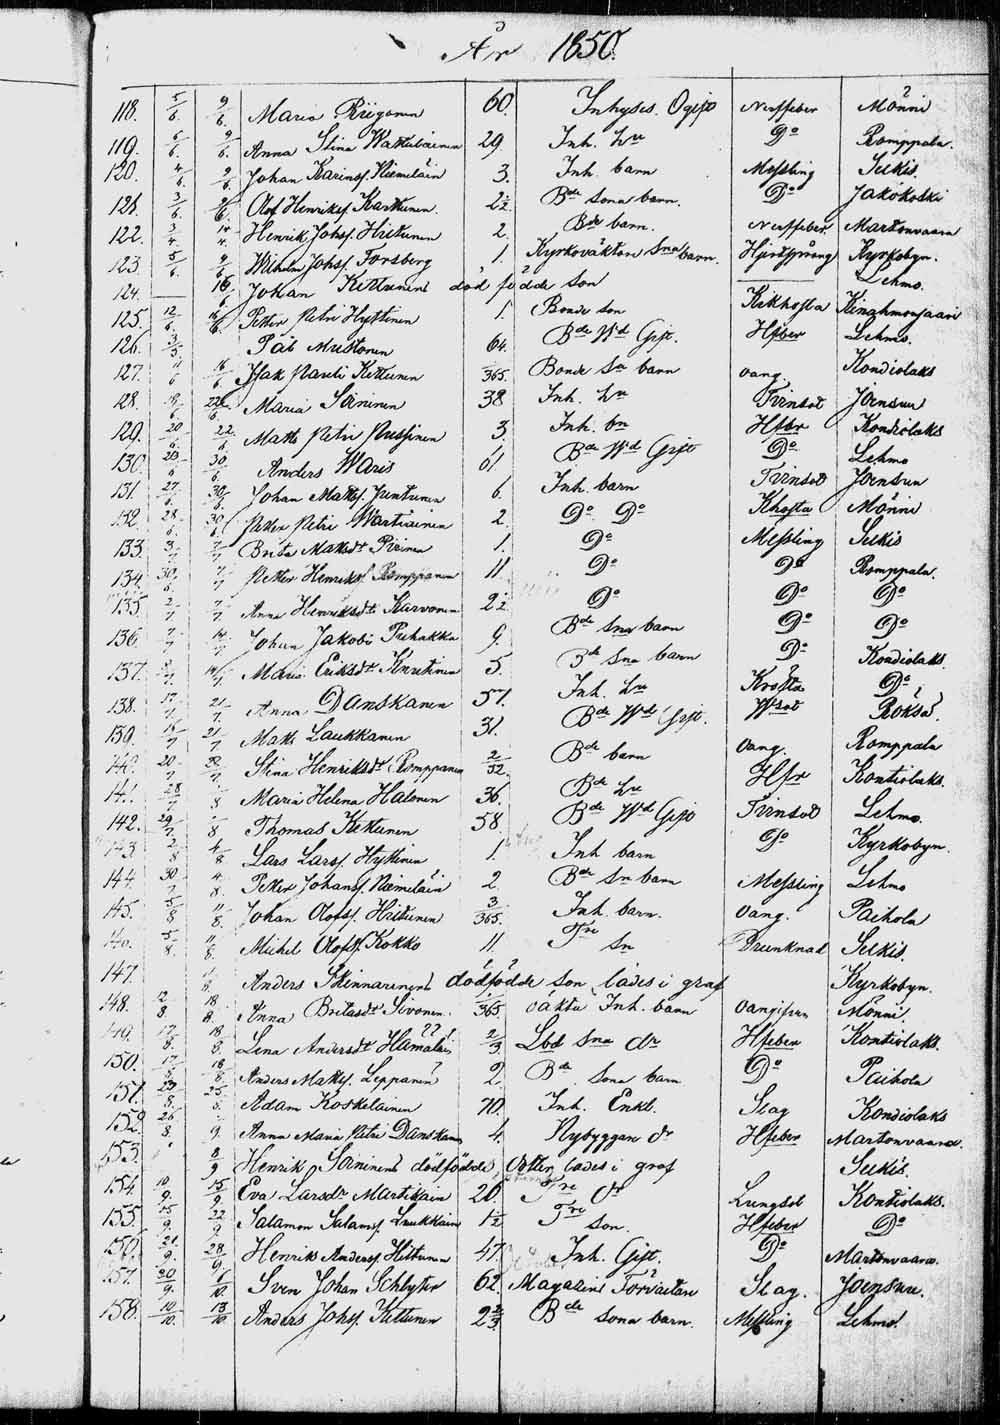 År 1850.
118. 5/6. 9/6. Maria Riigonen 60. Inhyses. Ogift Nerffeber Mönni
119. 6/6. 9/6. Anna Stina 29. Inh. hru Do Romppala.
120. 4/6. 9/6. Johan Karinsf. Niemeläin 3. Inh. barn Messling Selkis.
121. 3/6. 9/6. Olof Henriksf. Karttunen. 2½ Bde sona barn. Do Jakokoski
122. 3/4. 14/4. Henrik Johsf. Hiltunen 2. Bde barn. Nerffeber Martonvaara
123. 5/6. 9/6 Wilhelm Johsf. Forsberg 1. Kyrkoväktare Sna barn. Hjertsprång Kyrkobyn.
124. — 16/6 Johan Kettunens död födde son — Lehmo.
125. 12/6. 16/6 Petter Petri Hyttinen 1. Bonde son Kikhosta
126. 3/5. Pål Mustonen 64. Bde Wd Gift. Hfeber Lehmo.
127. 11/6 16/6 Isak Pauli Kettunen /365. Bonde Sn barn oang. Kondiolaks
128. 18/6 22/6. Maria Soninen 38 Inh. hru Tvinsot Joensuu
129. 20/6. 22/6. Matts Petri Pussinen 3. Inh. bn Hfbr Kondiolaks
130. 23/6 30/6. Anders Waris 61 Bde Wd Gift Do Lehmo
131. 27/6. 30/6. Johan Mattsf. Juntunen 6. Inh. barn Tvinsot Joensuu
132. 28/6. 30/6. Petter Petri Wartiainen 2. Do Do Khosta Mönni
133. 3/7 7/7 Brita Mattsdr Piirinen 1. Do Messling Selkis
134. 30/6. 7/7 Petter Henriksf. Romppanen 11 Do Do Romppala.
135. 2/7 7/7. Anna Henriksdr Karvonen 2½ Do Do Do
136. 7/7 14/7. Johan Jakobi Puhakka 9. Bde Sna barn Do Do
137. 9/7 14/7 Maria Eriksdr Knuutinen 5. Bde Sna barn Do Kondiolaks.
138. 17/7 21/7. Anna Danskanen 57. Inh. hru Do
139. 16/7 21/7 Matts Laukkanen 31. Bde Wd Gift. Wsot Roksa.
140. 20/7 Stina Henriksdr Romppanen 2/52. Bde barn oang. Romppala
141. 28/7 /8 Maria Helena Halonen 36. Bde hru Hfr Kontiolaks.
142. 29/7. /8 Thomas Kettunen 58. Bde Wd Gift Tvinsot Lehmo.
143. 2/8 4/8 Lars Larsf. Hyttinen 1. Inh barn Do Kyrkobyn.
144. 30/7 4/8. Petter Johansf. Niemeläin 2. Bde Sn barn Messling Lehmo
145. 5/8 11/8 Johan Olofsf. Hiltunen 3/365. Inh. barn. oang. Paihola
146. 5/8. 11/8. Michel Olofsf. Kokko 11. Tre Sn Drunknad Selkis.
147. Anders Skinnarinens dödfödde son lades i graf Kyrkobyn.
148. 12/8. 18/8. Anna Britasdr Sivonen. /365. oäkta Inh. barn oangifven Mönni
149. 17/8. 18/8. Lena Andersdr Hämäläin 2/3 Lbd Sna dr Hfeber Kontiolaks.
150. 17/8 18/8 Anders Mattsf. Leppanen 2. Bde Sona barn Do Paihola
151. 23/8. 25/8. Adam Koskelainen 70. Inh. Enkl. Slag Kondiolaks
152. 26/8. /9. Anna Maria Petri Danskanen 4. Nybyggare dr Hfeber Martonvaara.
153. 8/9 Henrik Soninens dödfödde dotter lades i graf Selkis.
154. 10/9. 15/9 Eva Larsdr Martikain 26. Tre dr Lungsot Kontiolaks.
155. 15/9. 22/9 Salamon Salamsf. Laukkain 1½ Tre son. Hfeber Do
156. 21/9. 28/9 Henrik Andersf. Hiltunen 47. Inh. Gift. Do Martonvaara.
157. 30/9. 6/10 Sven Johan Schlyter 62. Magazins Förvaltare Slag. Joensuu.
158. 10/10. 13/10 Anders Johsf. Kettunen 2 2/3. Bde sona barn. Messling Lehmo.